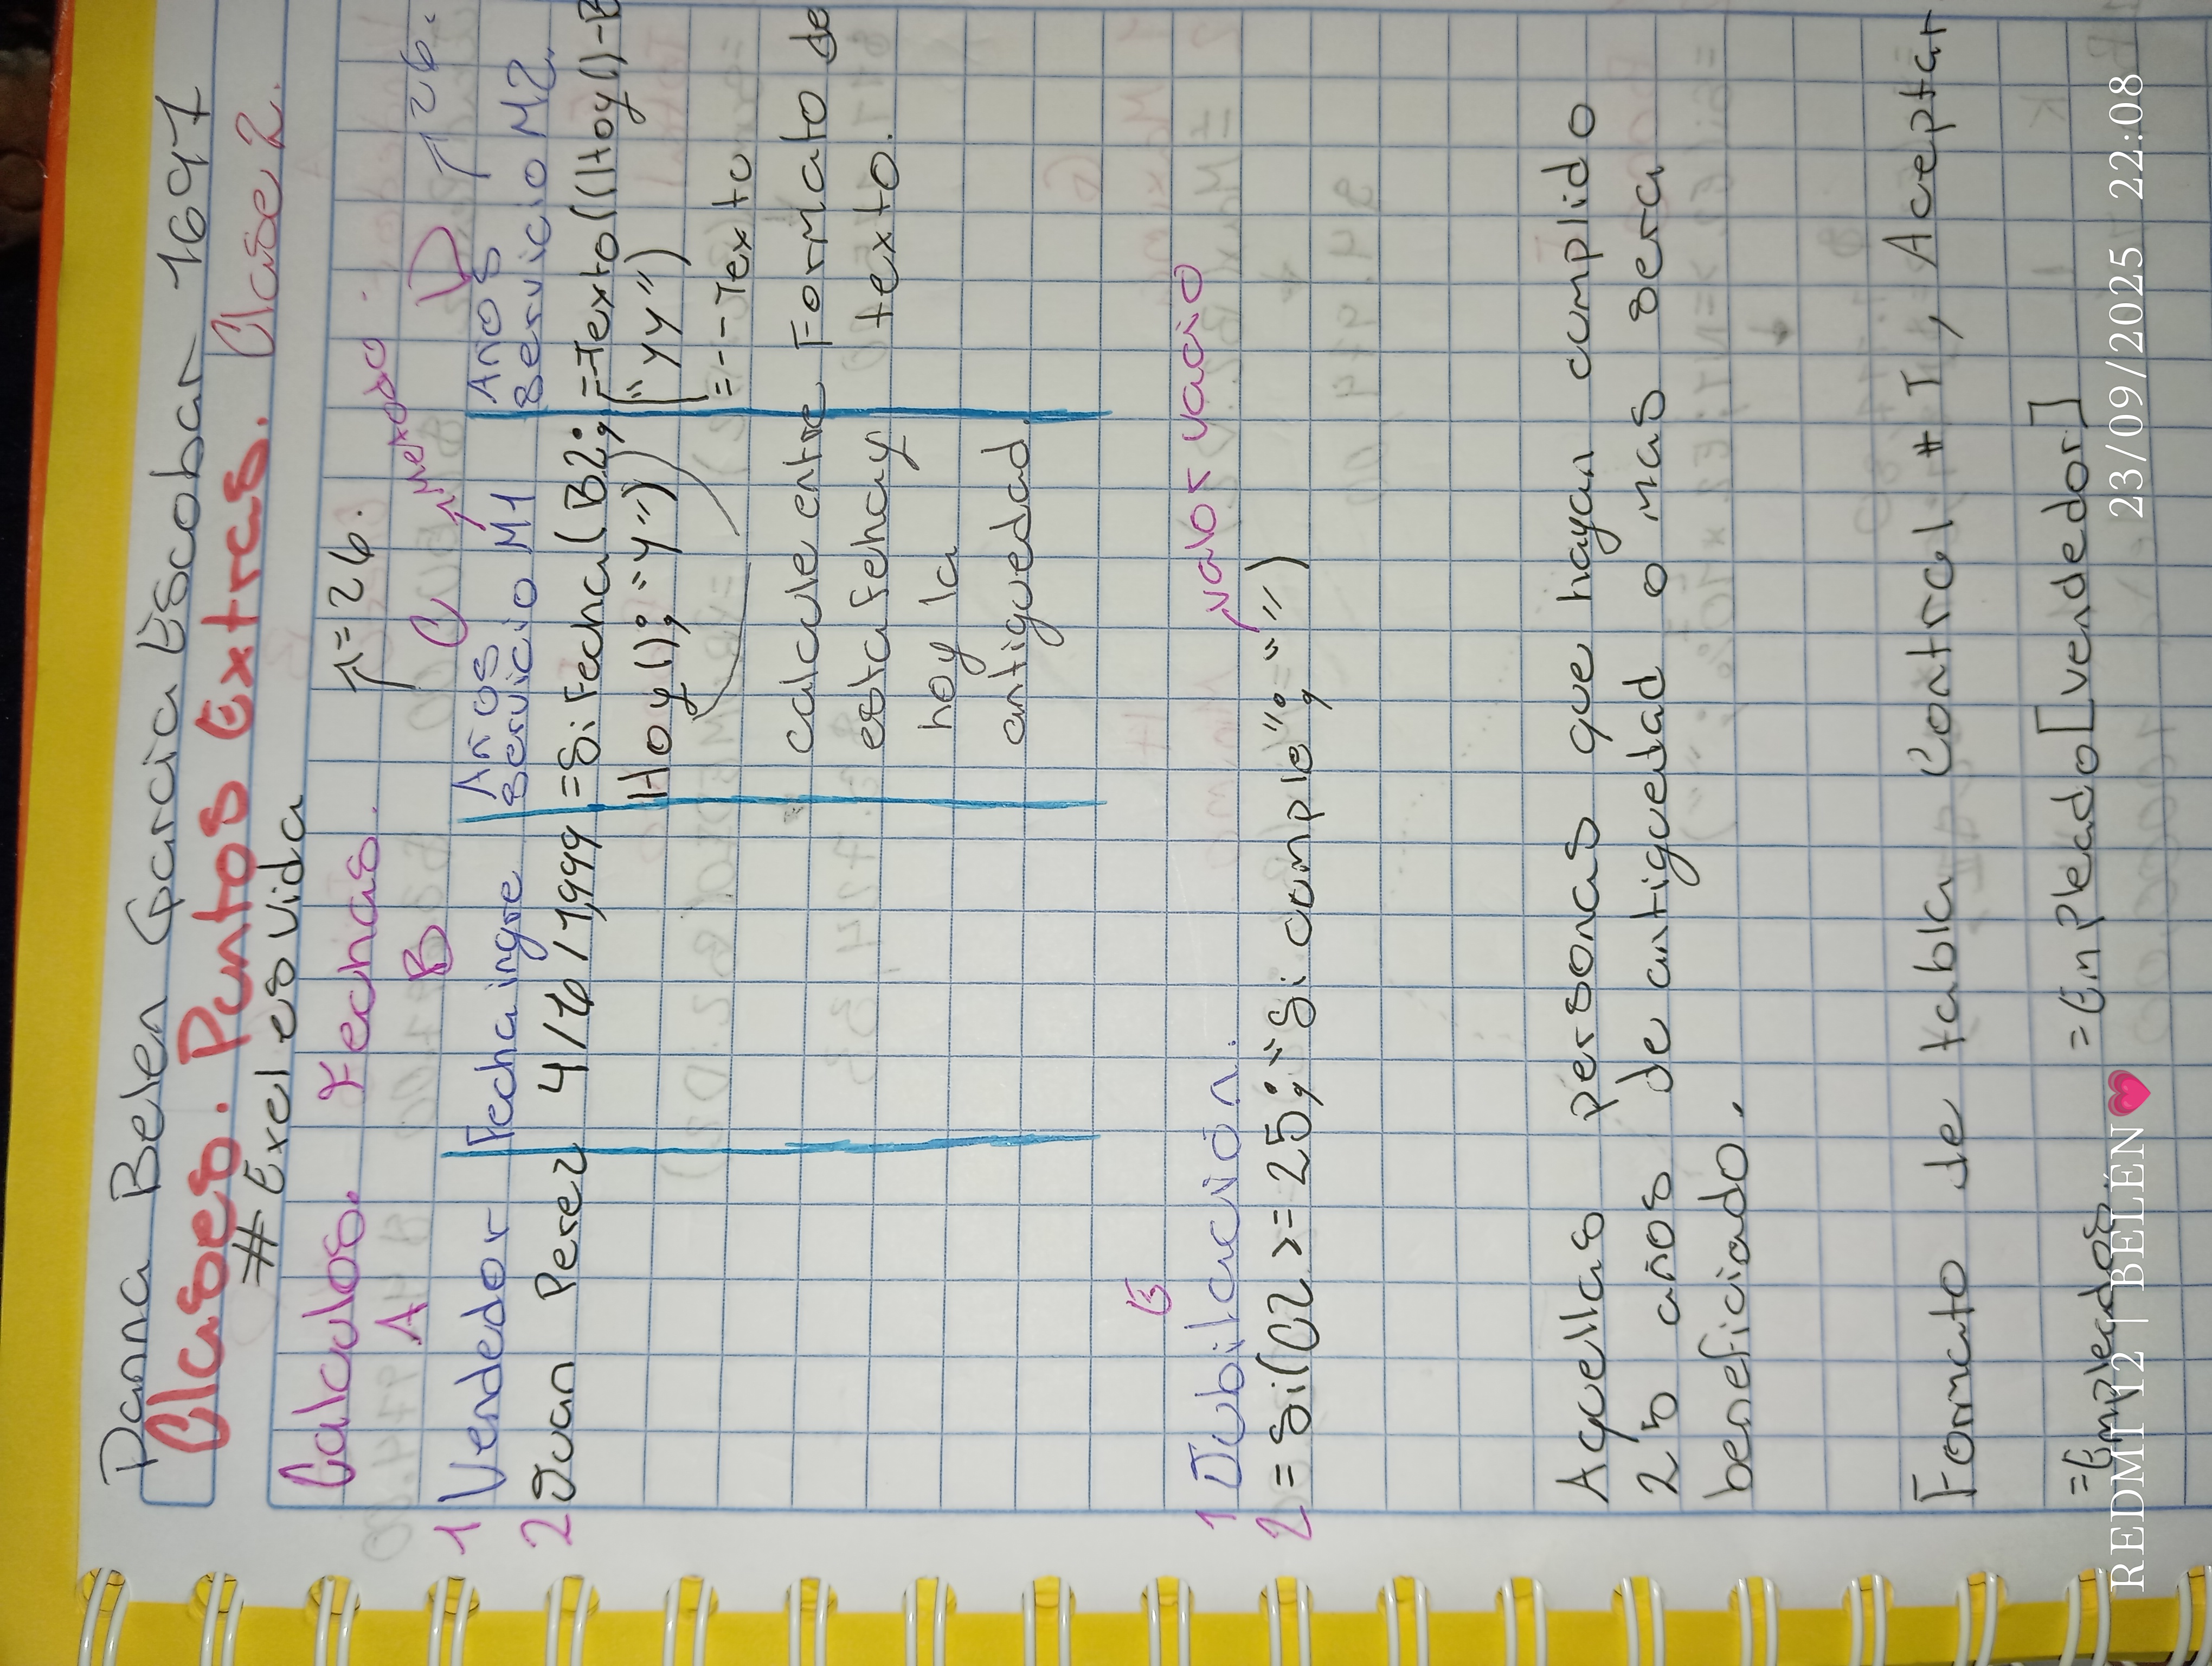 Danna Belen Garcia Escobar 16971
Clases. Puntos Extras. Clase 2.
# Exel es vida
Calculos. Fechas. =26.
A B C Metodo D 26.
1 Vendedor Fecha ingre Años Servicio M1 Años Servicio M2.
2 Juan Perez 4/16/1,999 =SiFecha(B2; Hoy();"y") =Texto((Hoy()-B
"yy")
=--Texto
calcule entre esta fehay hoy la antiguedad.
Formato de texto.
E
1 Jubilación. valor vacio
2 =Si(C2>=25;"Si cumple";"")
Aquellas personas que hayan cumplido
25 años de antiguedad o mas sera
beneficiado.
Formato de tabla Control # T, Aceptar
=Empleados =Empleado[vendedor]
REDMI 12 | BELÉN💗 23/09/2025 22:08